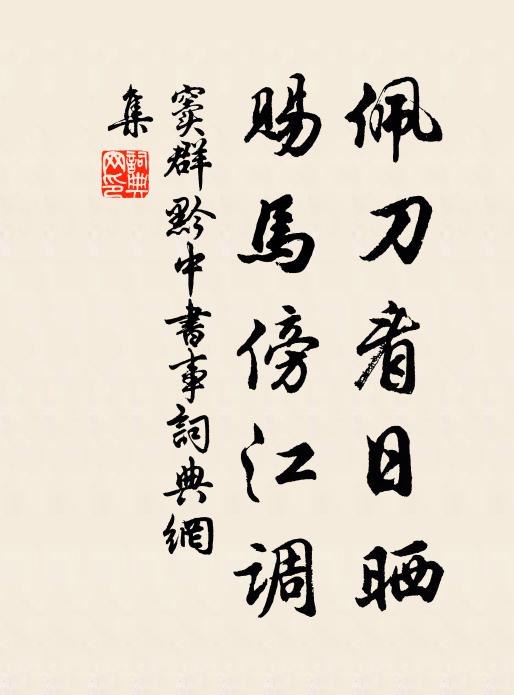 佩刀看日晒
赐馬傍江调
窦群黔中書事詞典網
集
詞典網印